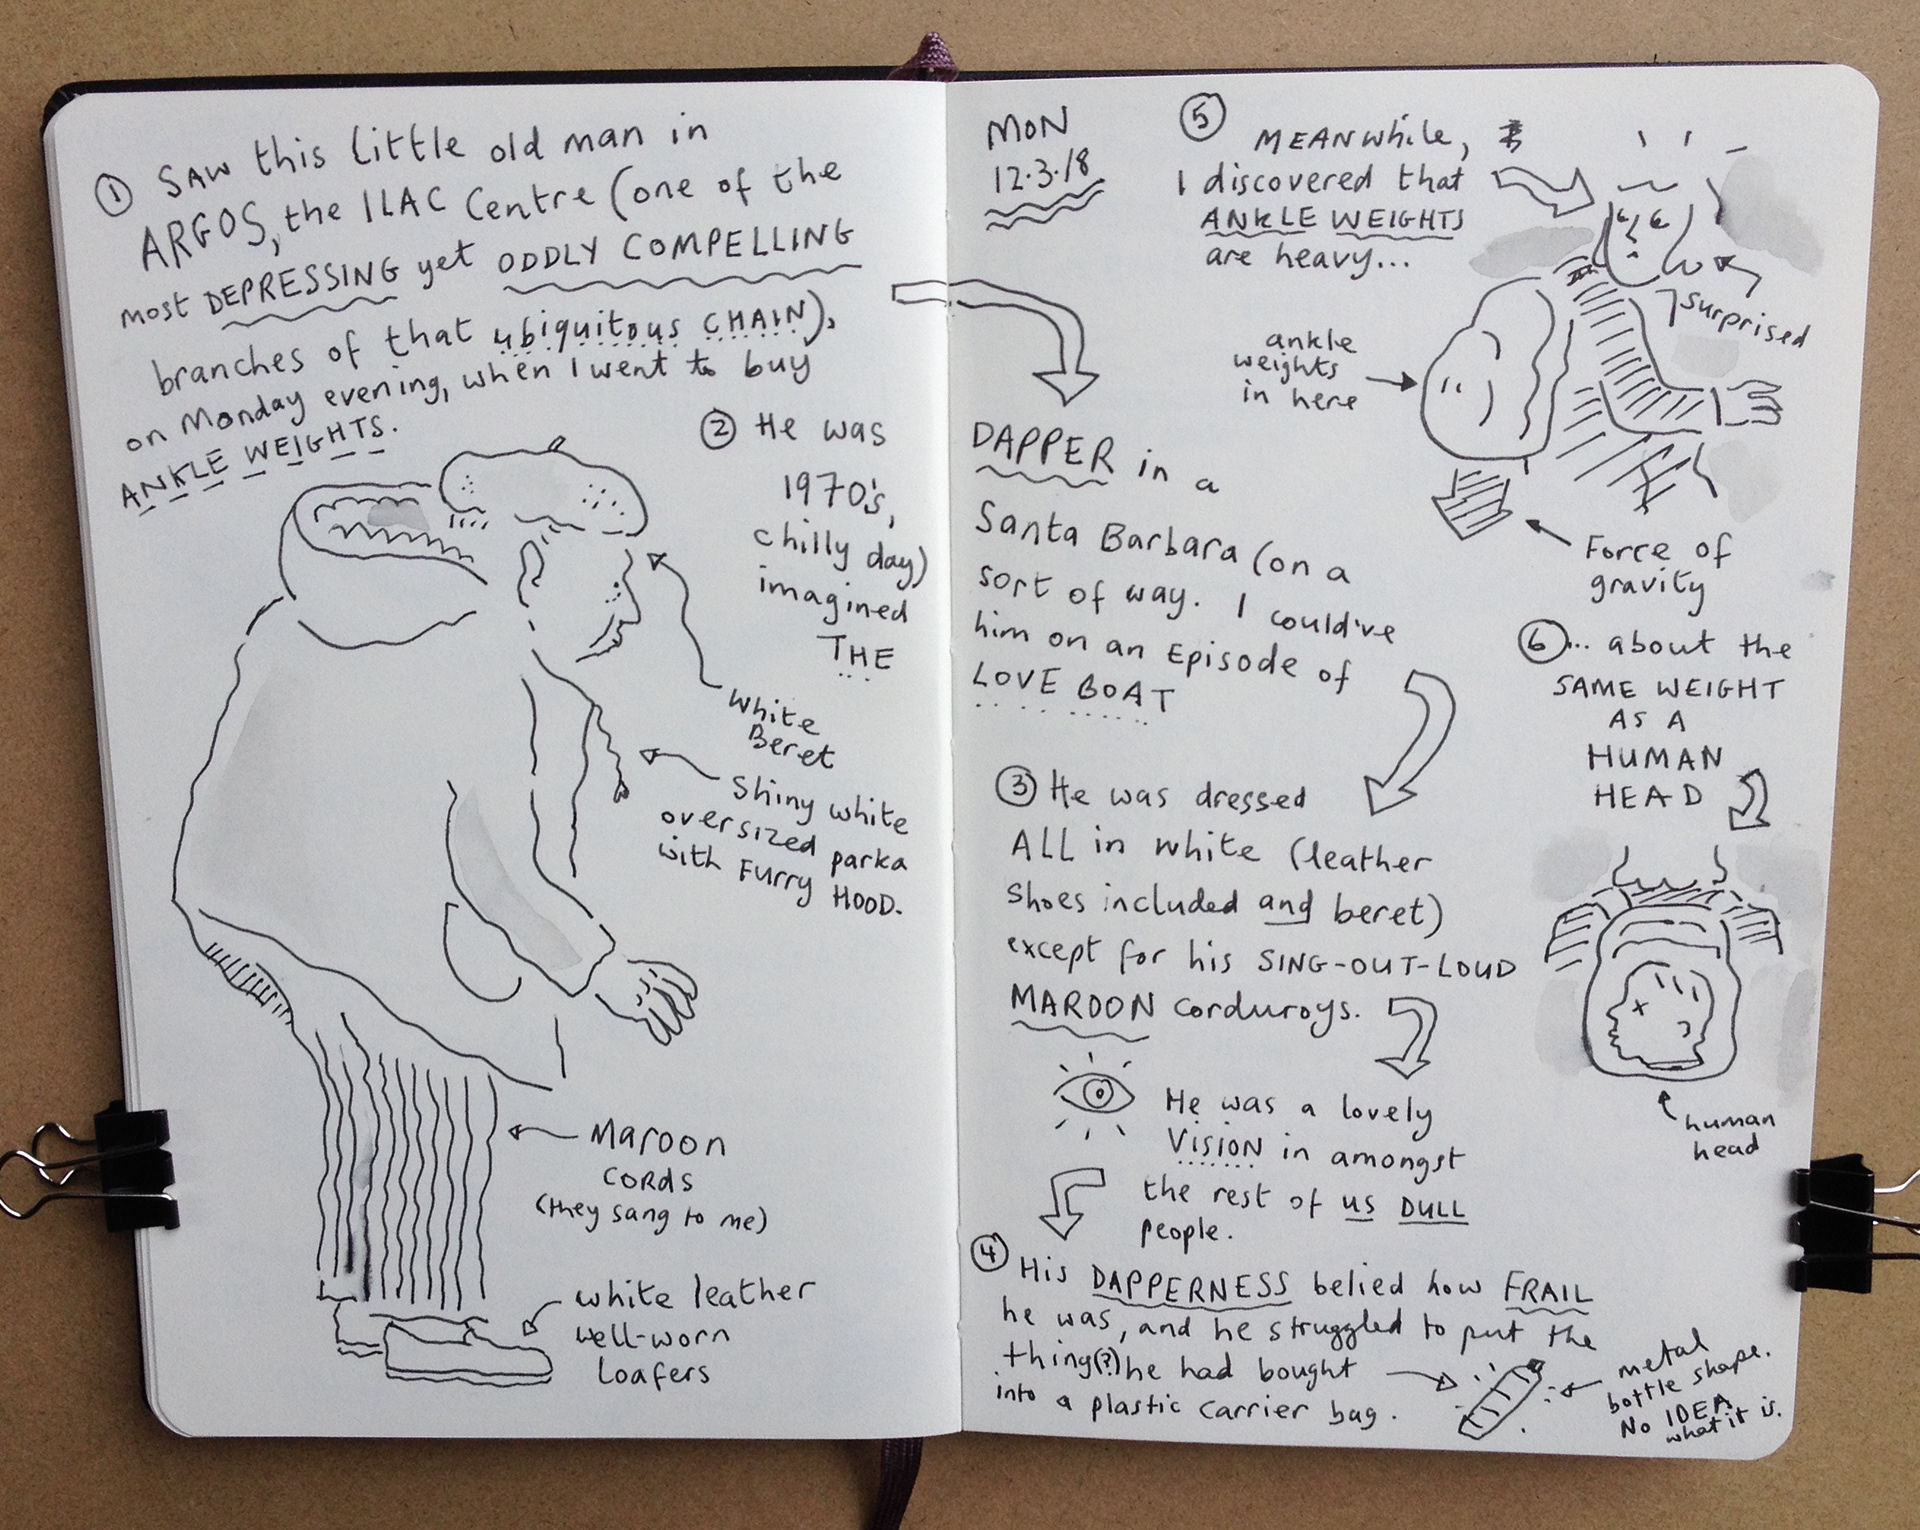 ① Saw this little old man in
ARGOS, the ILAC Centre (one of the
most DEPRESSING yet ODDLY COMPELLING
branches of that ubiquitous CHAIN),
on Monday evening, when I went to buy
ANKLE WEIGHTS.
② He was
1970's,
chilly day)
imagined
THE
White
Beret
Shiny white
oversized parka
with Furry HOOD.
Maroon
CORDS
(they sang to me)
white leather
well-worn
loafers
MON
12.3.18
DAPPER in a
Santa Barbara (on a
sort of way. I could've
him on an Episode of
LOVE BOAT
③ He was dressed
ALL in white (leather
shoes included and beret)
except for his SING-OUT-LOUD
MAROON corduroys.
He was a lovely
VISION in amongst
the rest of us DULL
people.
④ His DAPPERNESS belied how FRAIL
he was, and he struggled to put the
thing(?) he had bought
into a plastic carrier bag.
metal
bottle shape.
NO IDEA
what it is.
⑤ MEANWhile,
I discovered that
ANKLE WEIGHTS
are heavy...
surprised
ankle
weights
in here
Force of
gravity
⑥ ... about the
SAME WEIGHT
AS A
HUMAN
HEAD
human
head